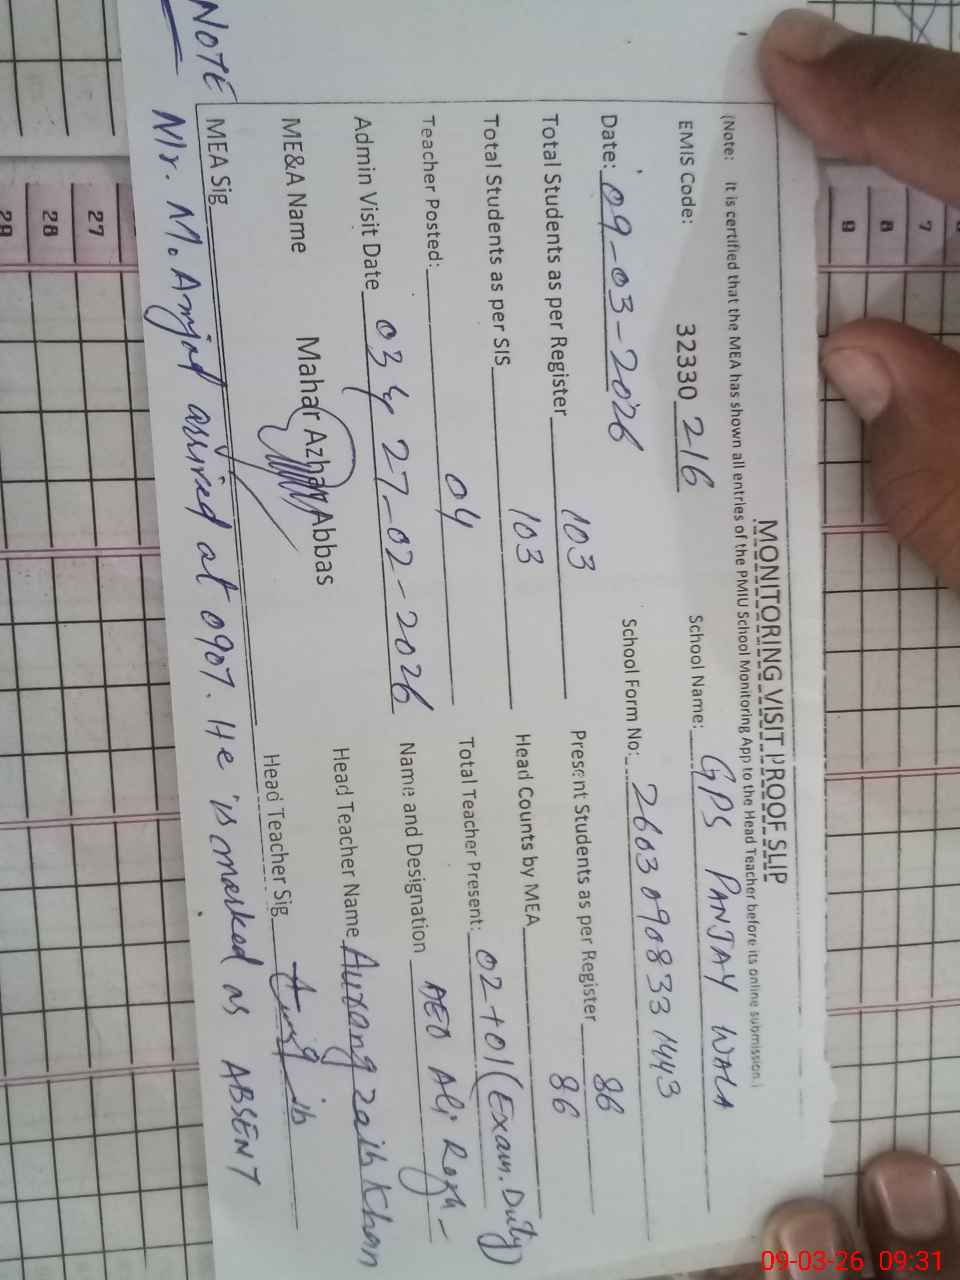 MONITORING VISIT PROOF SLIP
(Note: It is certified that the MEA has shown all entries of the PMIU School Monitoring App to the Head Teacher before its online submission.)
EMIS Code: 32330 216 School Name: GPS PANJAY WALA
Date: 09-03-2026 School Form No: 26030908331443
Total Students as per Register 103 Present Students as per Register 86
Total Students as per SIS 103 Head Counts by MEA 86
Teacher Posted: 04 Total Teacher Present: 02+01 (Exam. Duty)
Admin Visit Date 03 & 27-02-2026 Name and Designation AEO Ali
ME&A Name Mahar Azhar Abbas Head Teacher Name Aurangzaib Khan
MEA Sig Head Teacher Sig
NOTE Mr. M. Amjad arrived at 0907. He is marked as ABSENT
9
8
7
27
28
29
09-03-26 09:31